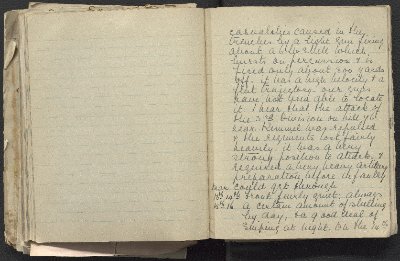 casualties caused in the
trenches by a light gun firing
about a shell which
bursts on percussion & is
fired only about 800 yards
off. it has a high velocity & a
flat trajectory. our guns
have not been able to locate
it. I hear that the attack of
the 3rd Division on hill
near Kemmel was repulsed
& the regiments lost fairly
heavily. it was a very
strong position to attack, &
required a very heavy artillery
preparation before infantry
could get through
front fairly quiet, always
a certain amount of shelling
by day, & a good deal of
sniping at night. On the 14th